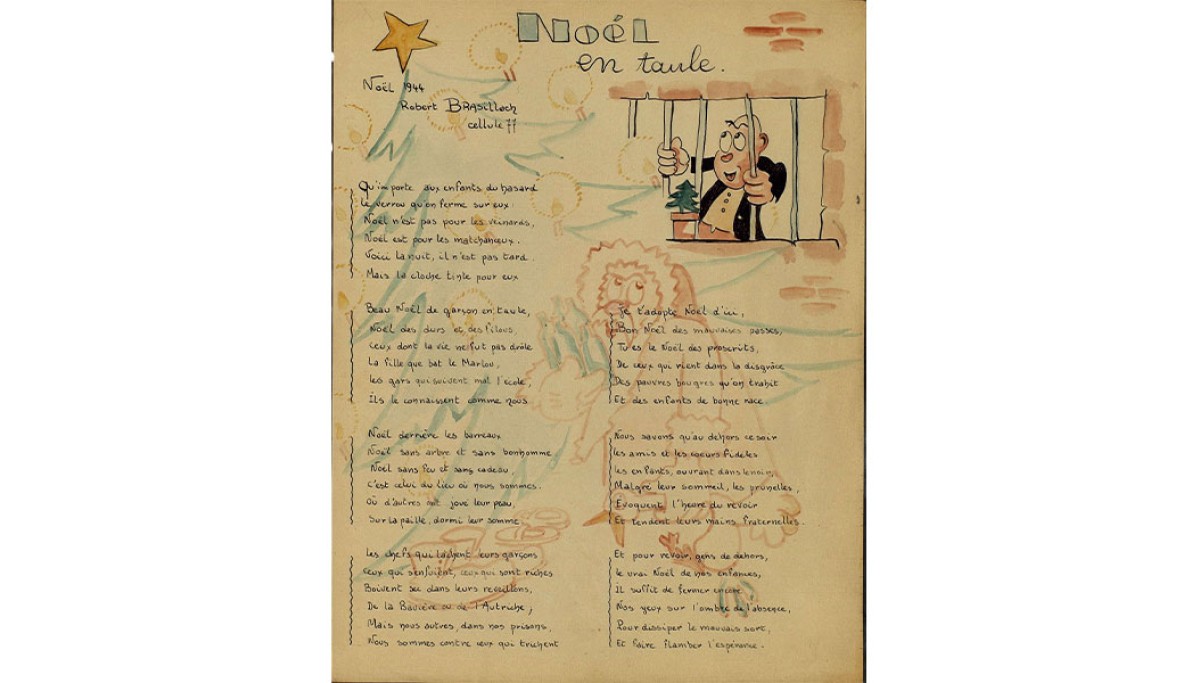 Noël
en taule.
Noël 1944
Robert BRASillach
cellule 77
Qu'importe aux enfants du hasard
Le verrou qu'on ferme sur eux :
Noël n'est pas pour les veinards,
Noël est pour les malchanceux.
Voici la nuit, il n'est pas tard.
Mais la cloche tinte pour eux
Beau Noël de garçon en taule,
Noël des durs et des filous,
Ceux dont la vie ne fut pas drôle
La fille que bat le Marlou,
les gars qui suivent mal l'école,
Ils le connaissent comme nous.
Noël derrière les barreaux
Noël sans arbre et sans bonhomme
Noël sans feu et sans cadeau
C'est celui du lieu où nous sommes.
Où d'autres ont joué leur peau,
Sur la paille, dormi leur somme.
Les chefs qui lâchent leurs garçons
Ceux qui s'enfuient, ceux qui sont riches
Boivent sec dans leurs reveillons,
De la Bavière ou de l'Autriche ;
Mais nous autres, dans nos prisons,
Nous sommes contre ceux qui trichent
Je t'adopte Noël d'ici,
Bon Noël des mauvaises passes,
Tu es le Noël des proscrits,
De ceux qui rient dans la disgrâce
Des pauvres bougres qu'on trahit
Et des enfants de bonne race.
Nous savons qu'au dehors ce soir
les amis et les coeurs fidèles
les enfants, ouvrant dans le noir,
Malgré leur sommeil, les prunelles,
Évoquent l'heure du revoir
Et tendent leurs mains fraternelles.
Et pour revoir, gens de dehors,
le vrai Noël de nos enfances,
Il suffit de fermer encore
Nos yeux sur l'ombre de l'absence,
Pour dissiper le mauvais sort,
Et faire flamber l'espérance.